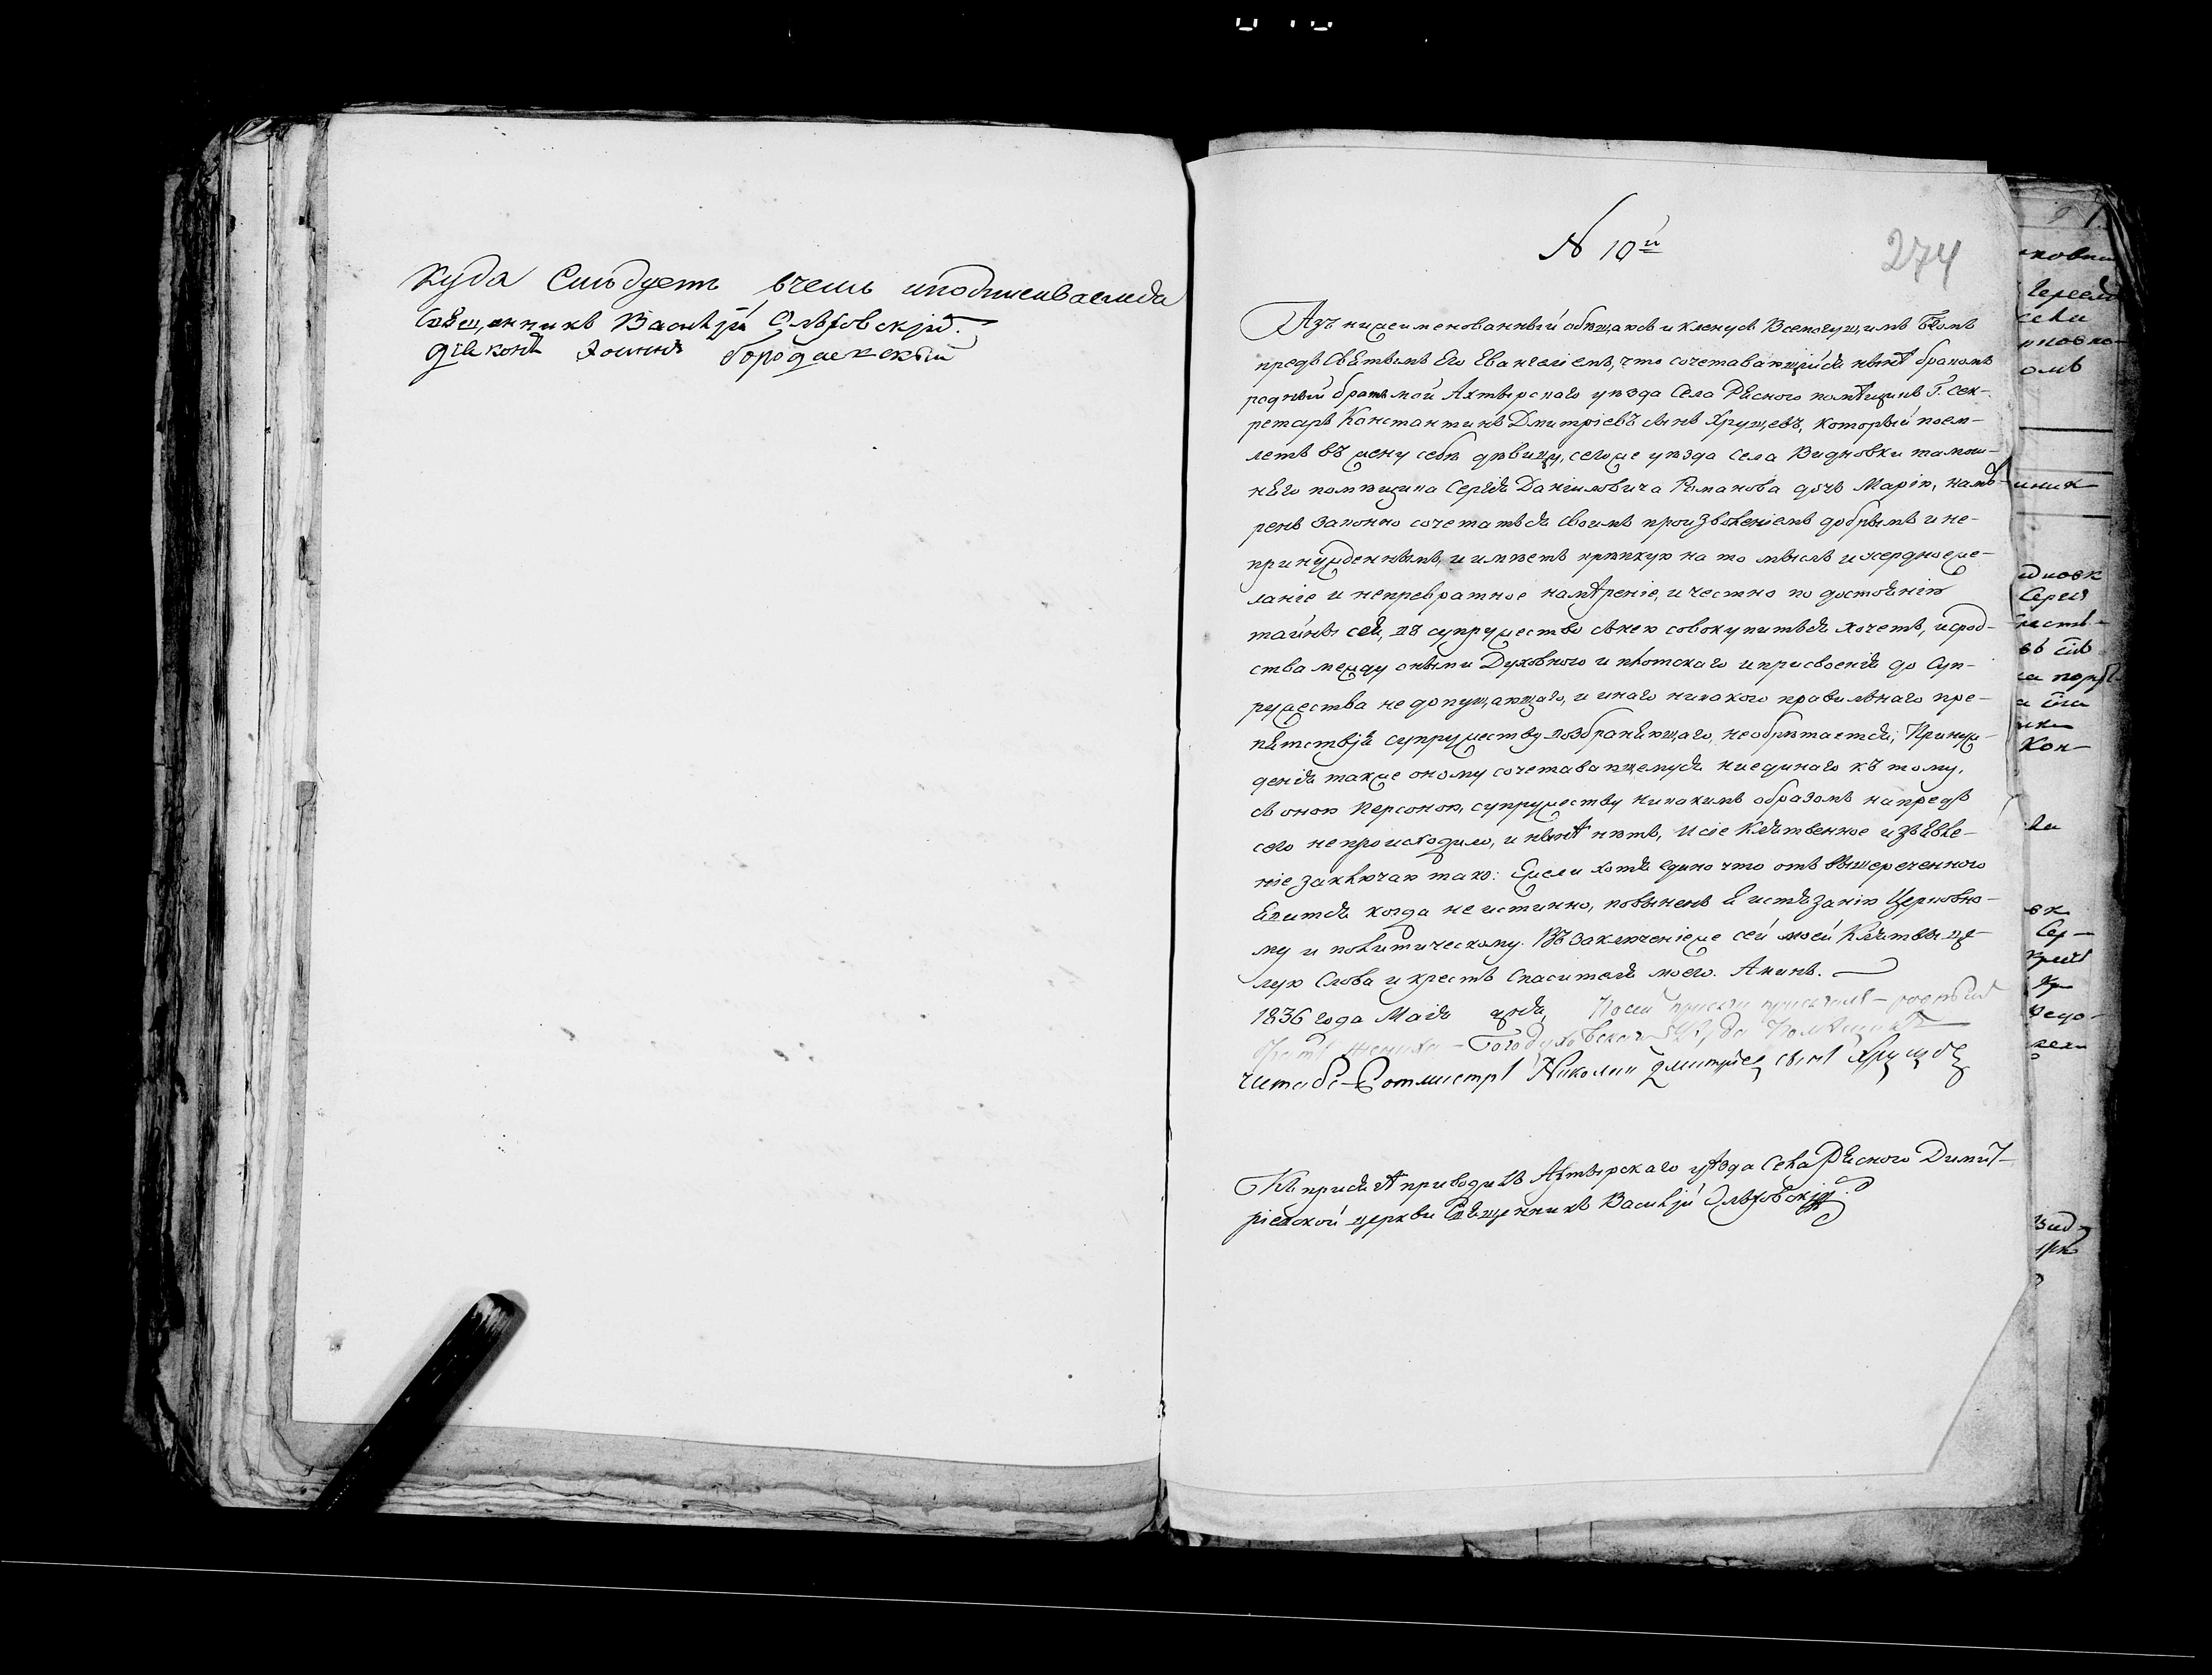 куда Слѣдуетъ вчемъ иподписиваемся
Священникъ Василій Ольховскій.
Діяконъ Іоаннъ Бородаевскій
N 10й
274
Азъ нижеименованный обѣщаюсь и кленусь Всемогущимъ Бгомъ
предъ Святымъ Его Евангеліемъ, что сочетавающійся нынѣ бракомъ
родный братъ мой Ахтырскаго уѣзда Села Рясного помѣщикъ Г. Сек-
ретарь Константинъ Дмитріевъ сынъ Хрущевъ, который поем-
летъ въ жену себѣ дѣвицу, тогоже уѣзда Села Видновки тамош-
няго помѣщика Сергія Даніиловича Романова дочь Марію, намѣ-
ренъ законно сочетаться своимъ произволеніемъ добрымъ и не-
принужденнымъ, и имѣетъ крѣпкую на то мысль и усердное же-
ланіе и непревратное намѣреніе, и честно по достоянію
тайны сея, въ супружество снею совокупиться хочетъ, и срод-
ства между оными Духовного и плотскаго и присвоенія до Суп-
ружества не допущающаго, и инаго никакого правильнаго пре-
пятствія супружеству возбраняющаго, необрѣтается; Принуж-
денія также оному сочетавающемуся ниединаго къ тому,
съ оною Персоною, супружеству никакимъ образомъ напредъ
сего непроисходило, и нынѣ нѣтъ, И сіе Клятвенное изъявле-
ніе заключаю тако: Ежели хотя едино что отъ вышереченного
явится когда не истинно, повиненъ я истязанію Церковно-
му и политическому. Въ заключеніеже сей моей Клятвы цѣ-
лую Слова и крестъ Спасителя моего. Аминь.
1836 года Маія дня, Посей присяги присягалъ – родный
братъ жениха – Богодуховскаго Уѣзда Помѣщикъ
Штабс-Ротмистръ Николай Дмитріев сынъ Хрущов
Къ присягѣ приводилъ Ахтырскаго уѣзда Села Рясного Димит-
ріевской церкви Священникъ Василій Ольховскій